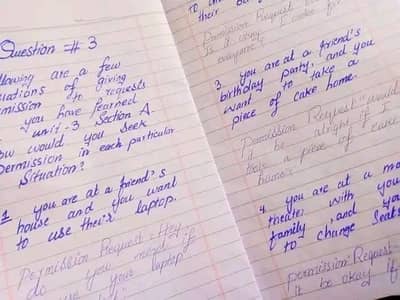 Question # 3
llowing are a few
uations of giving
mission to requests
you have learned
unit-3 Section A.
ow would you seek
permission in each particular
Situation?
1. you are at a friend's
house and you want
to use their laptop.
Permission Request - Hey,
do you mind if
use your laptop
their
Permission Request
Is it okay
everyone?
3. you are at a friend's
birthday party, and you
want to take a
piece of cake home.
Permission Request "would
it be alright if I
take a piece of cake
home.
4. you are at a mo
theater with you
family and you
to change seats
permission Request-
it be okay if